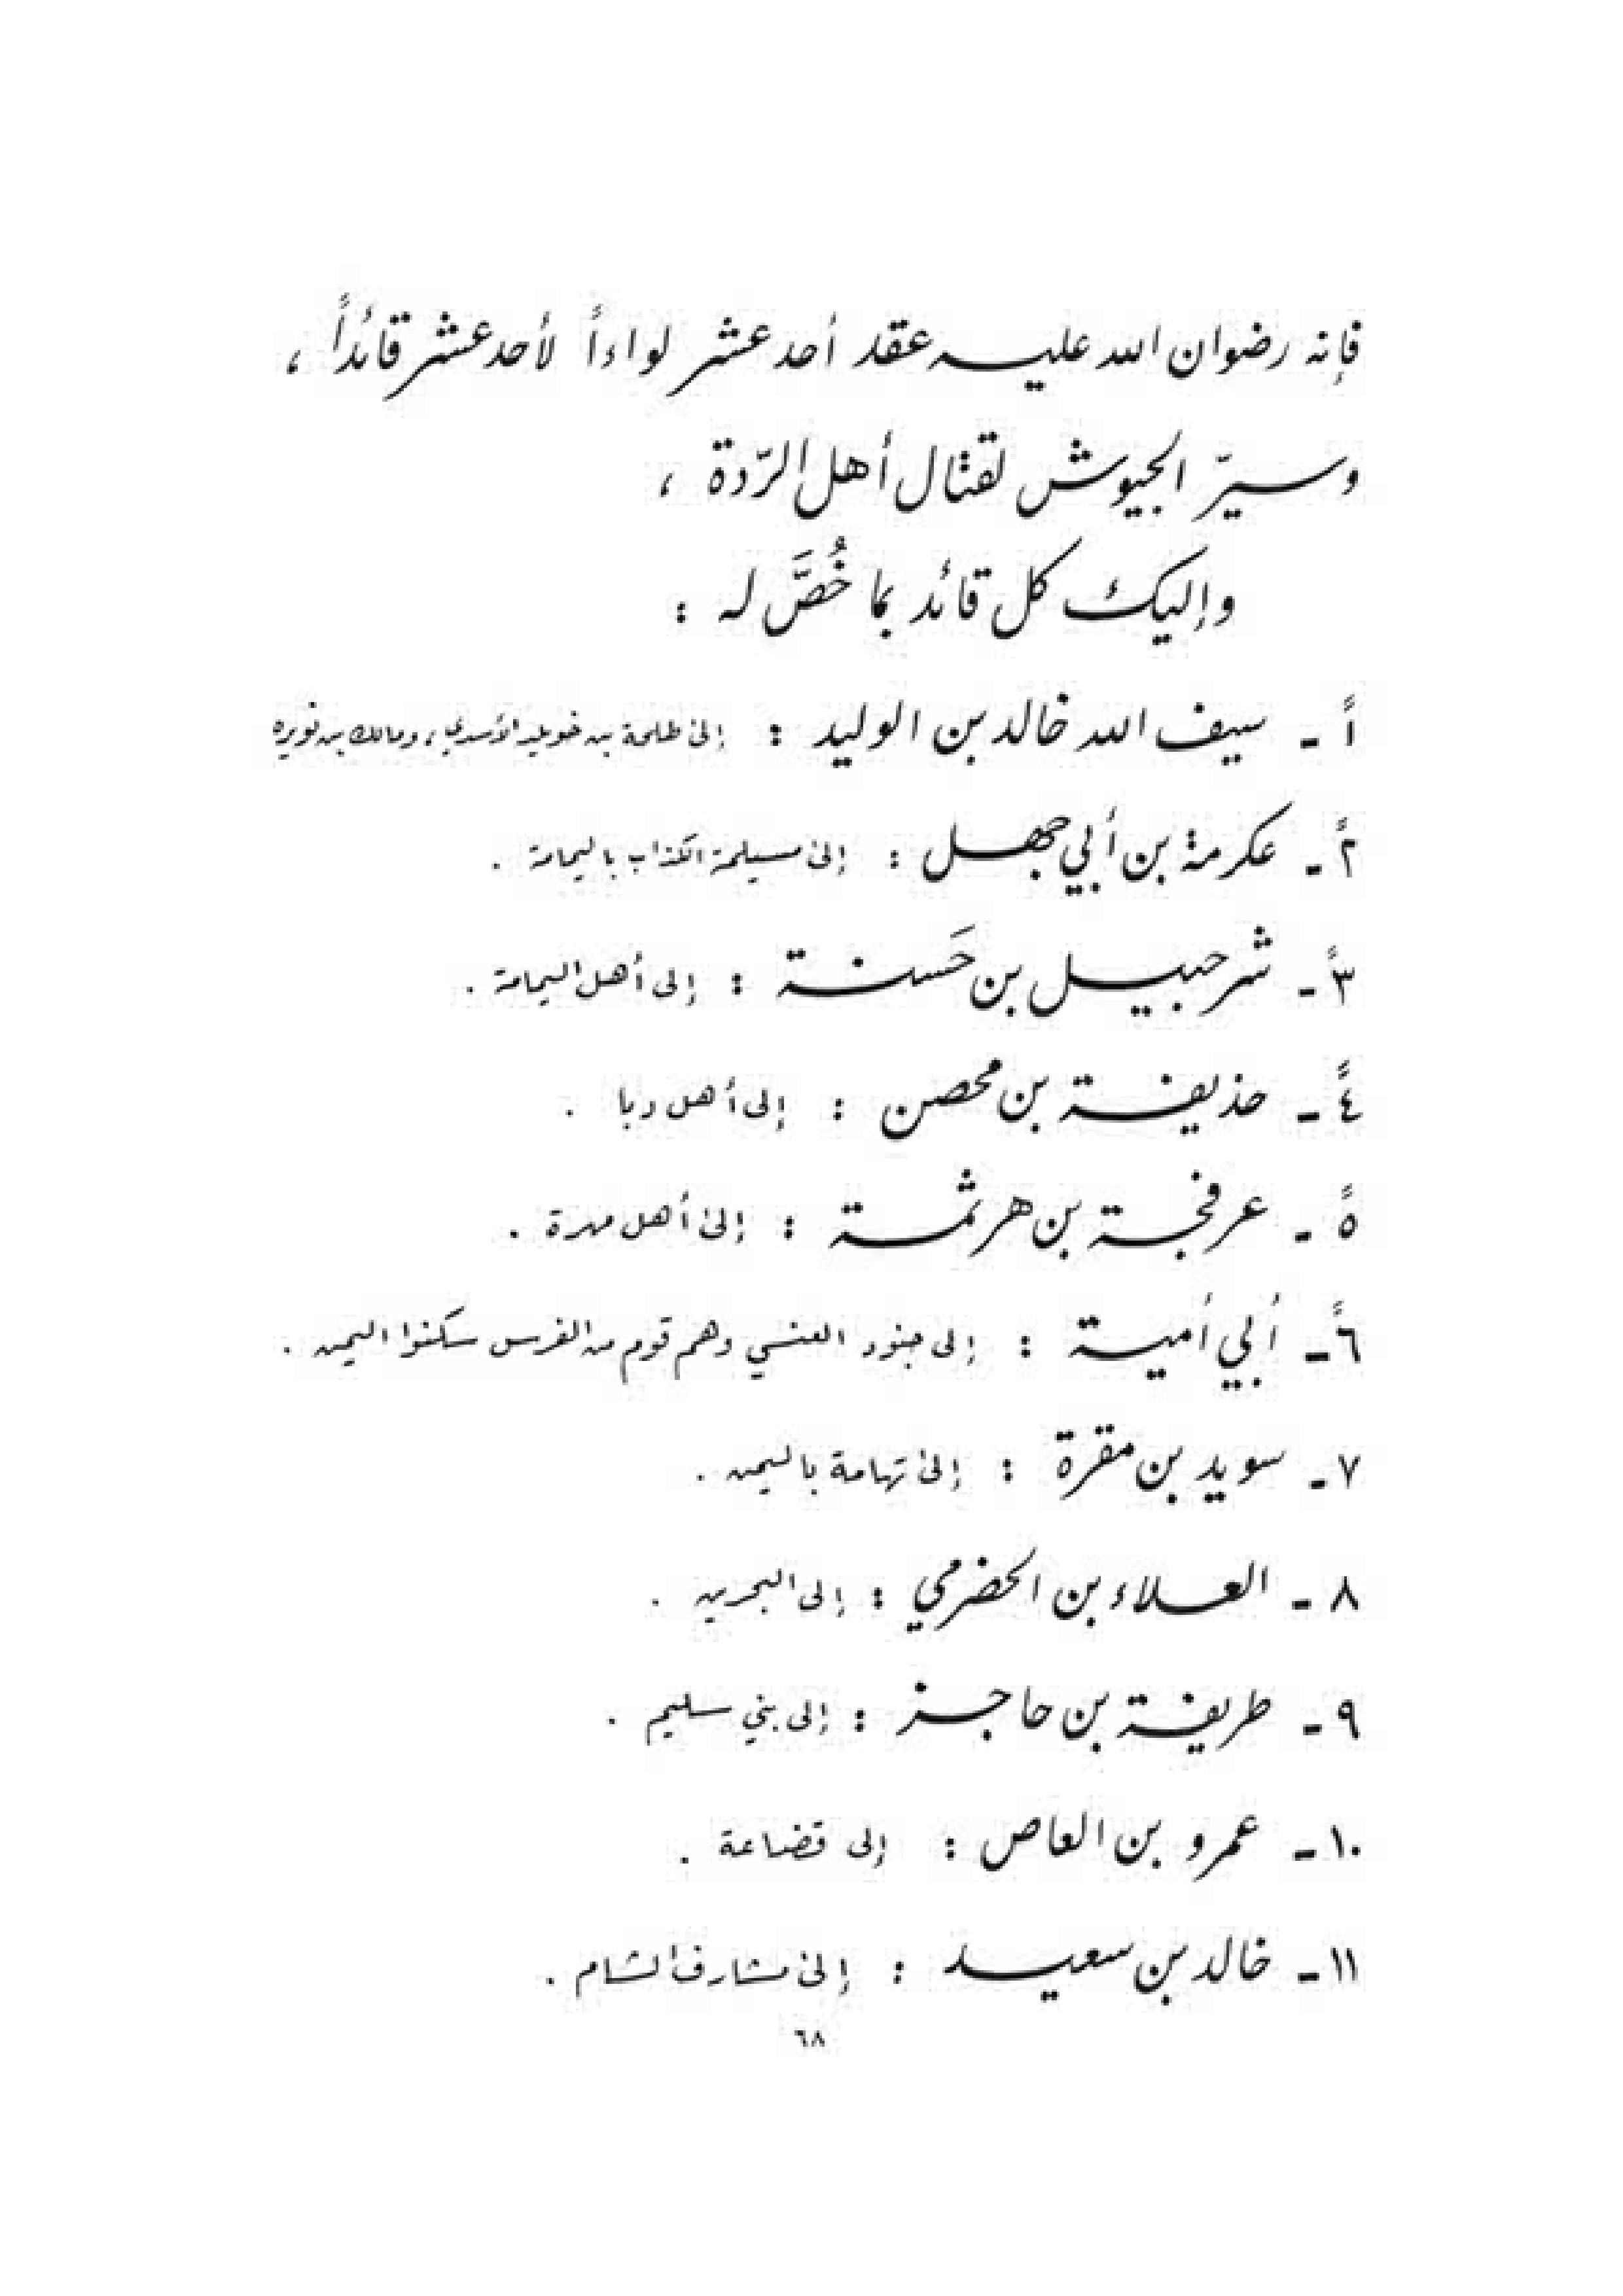 فإنه رضوان الله عليه عقد أحد عشر لواءاً لأحد عشر قائداً ،
وسيرّ الجيوش لقتال أهل الرّدة ،
وإليك كل قائد بما خُصَّ له :
١ً - سيف الله خالد بن الوليد : إلى طلحة بن خويلد الأسدي ، ومالك بن نويره
٢ً - عكرمة بن أبي جهل : إلى مسيلمة الكذاب باليمامة .
٣ً - شرحبيل بن حَسنة : إلى أهل اليمامة .
٤ً - حذيفة بن محصن : إلى أهل دبا .
٥ً - عرفجة بن هرثمة : إلى أهل مهرة .
٦ً - أبي أمية : إلى جنود العنسي وهم قوم من الفرس سكنوا اليمن .
٧ - سويد بن مقرة : إلى تهامة باليمن .
٨ - العلاء بن الحضرمي : إلى البحرين .
٩ - طريفة بن حاجز : إلى بني سليم .
١٠ - عمرو بن العاص : إلى قضاعة .
١١ - خالد بن سعيد : إلى مشارف الشام .
٦٨